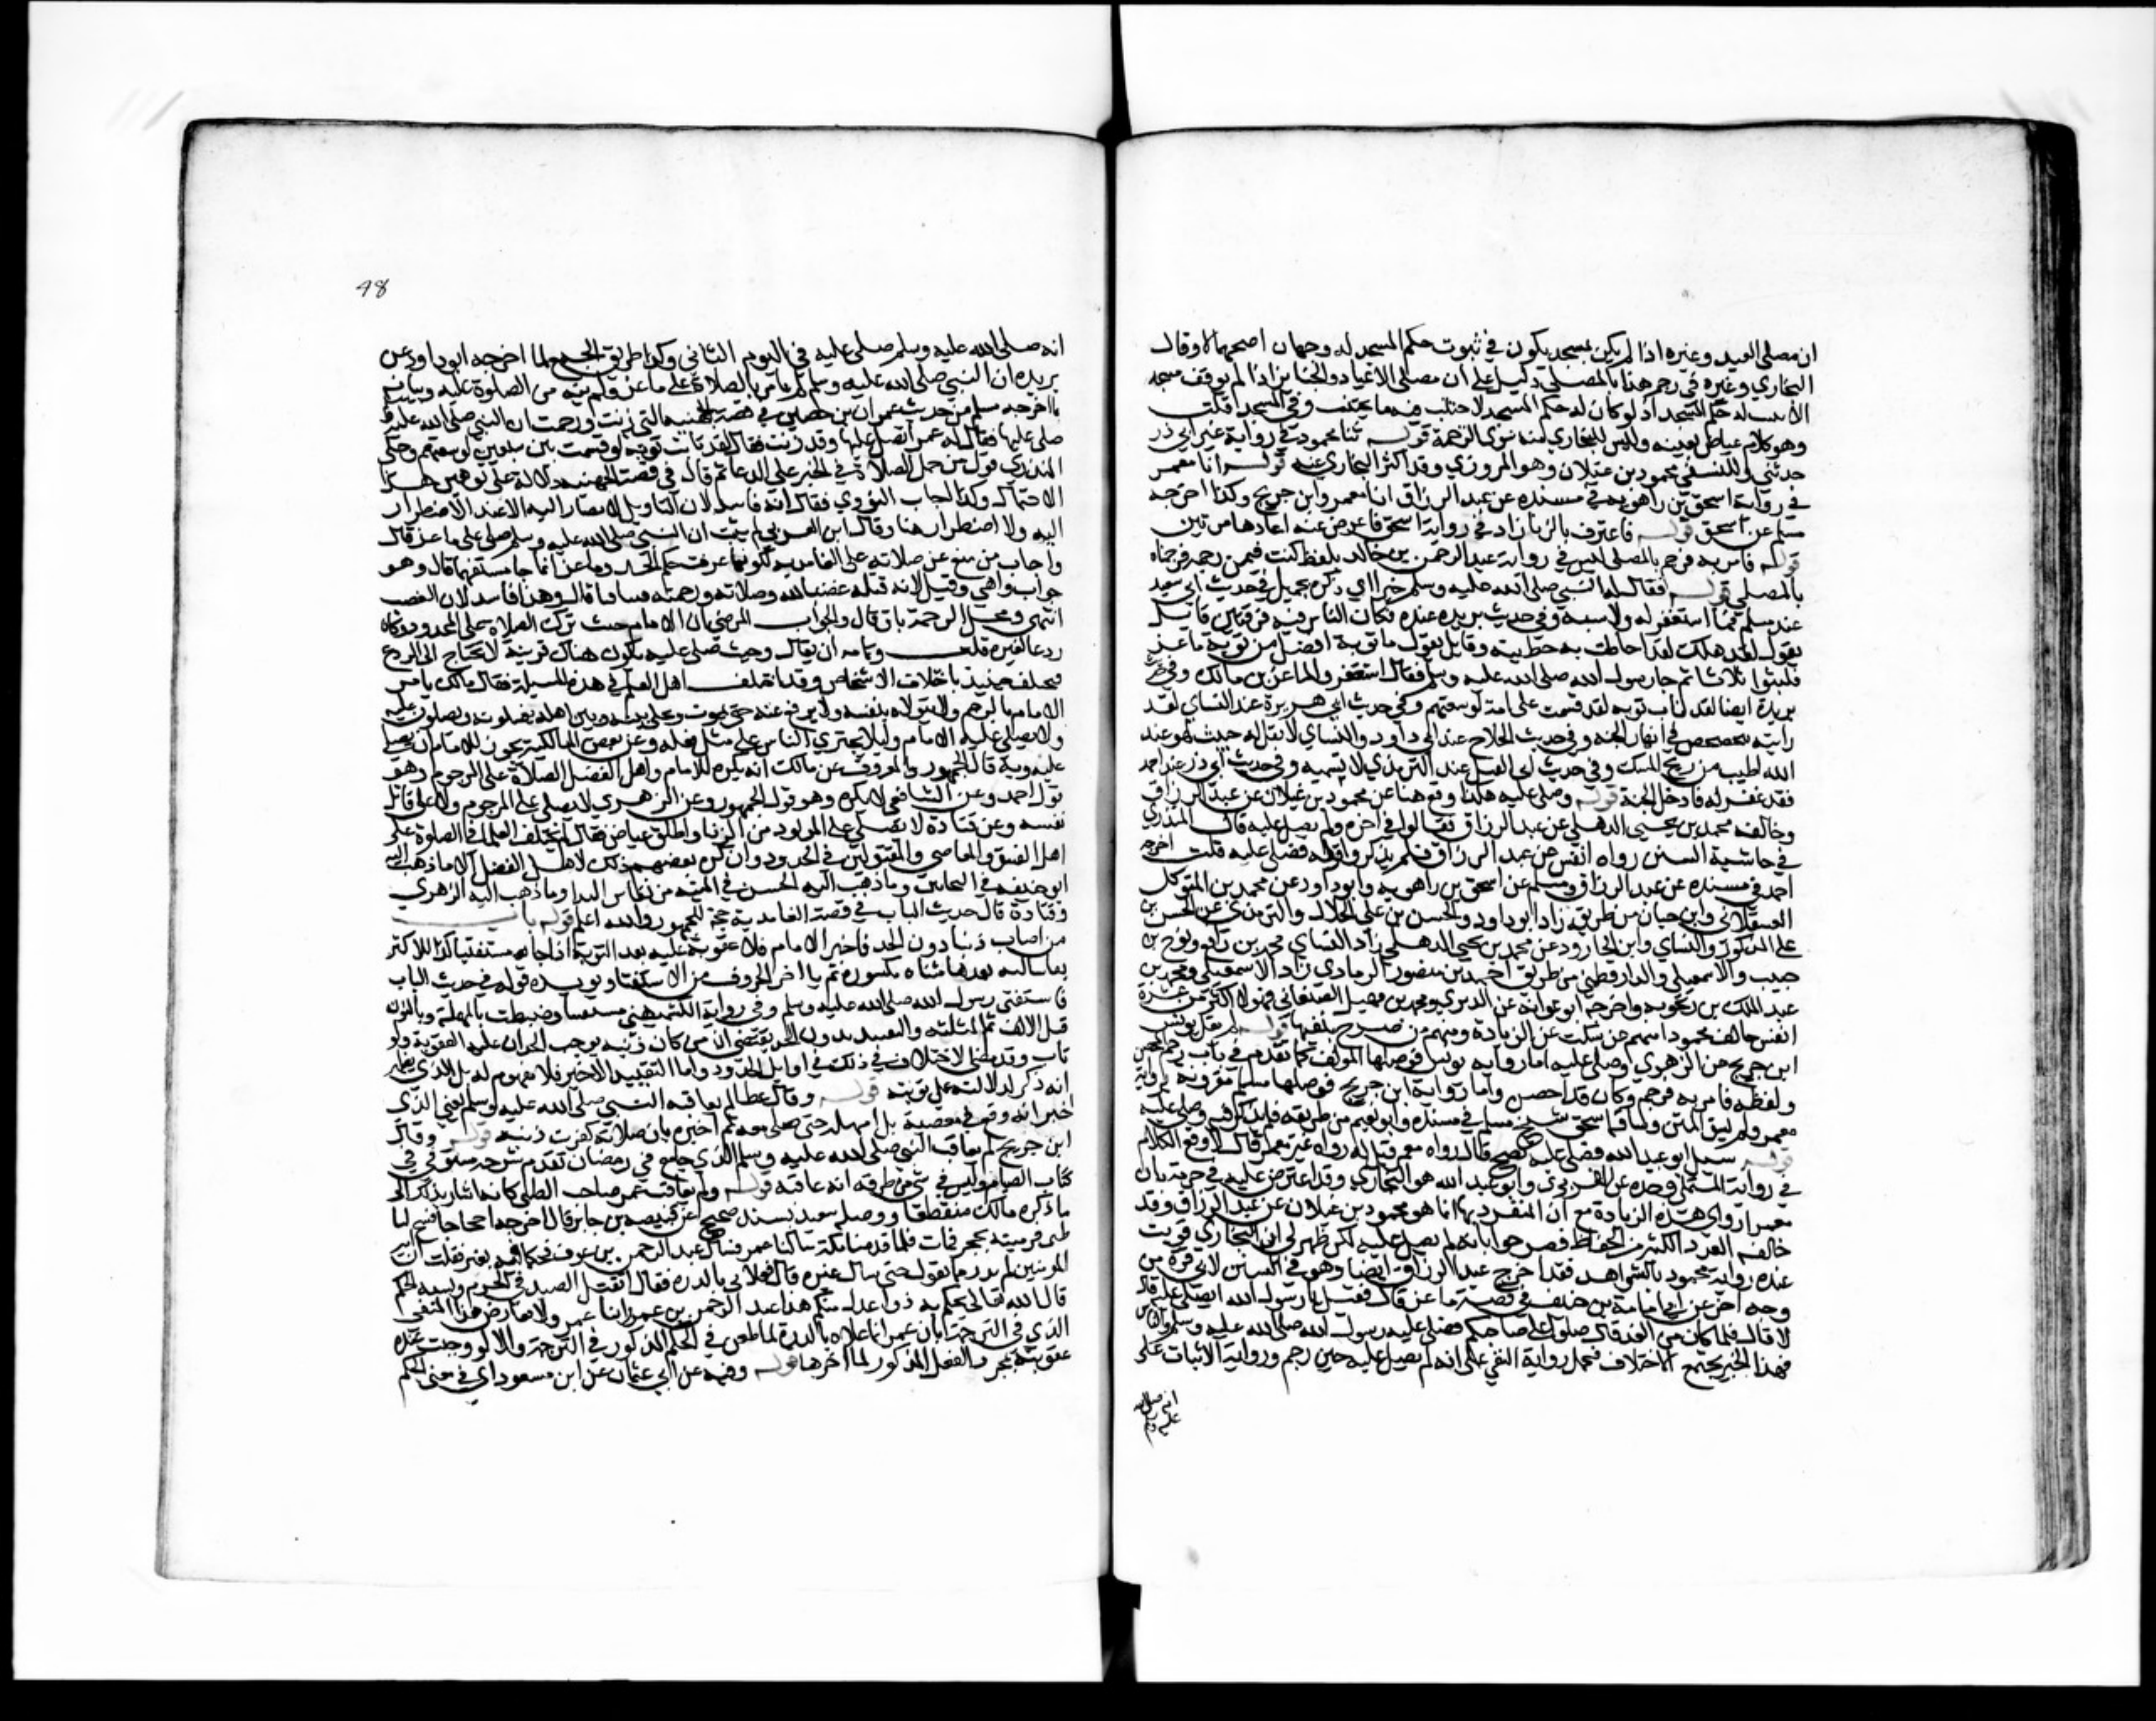 ان مصلى العيد وغيره اذا لم يكن بمسجد يكون في ثبوت حكم المسجد له وجهان اصحهما لا وقال
البخاري وغيره في رجم هذا بالمصلى دليل على ان مصلى الاعياد والجنايز اذا لم يوقف مسجد
لا يثبت له حكم المسجد اذ لو كان له حكم المسجد لاجتنب فيه ما يجتنب في المسجد قلت
وهو كلام عياض بعينه وليس للبخاري منه سوى الترجمة قوله ثنا محمود في رواية غير ابي ذر
حدثني وللنسفي محمود بن غيلان وهو المروزي وقد اكثر البخاري عنه قوله انا معمر
في رواية اسحق بن راهويه في مسنده عن عبد الرزاق انا معمر وابن جريج وكذا اخرجه
مسلم عن اسحق قوله فاعترف بالزنا زاد في رواية اسحق فاعرض عنه اعادها مرتين
قوله فامر به فرجم بالمصلى ليس في رواية عبد الرحمن بن خالد بلفظ كنت فيمن رجمه فرجمناه
بالمصلى قوله فقال له النبي صلى الله عليه وسلم خيرا اي ذكره بجميل في حديث ابي سعيد
عند مسلم فما استغفر له ولا سبه وفي حديث بريده عنده فكان الناس فيه فرقتين قايل
يقول لقد هلك لقد احاطت به خطيئته وقايل يقول ما توبة افضل من توبة ماعز
فلبثوا ثلاثا ثم جا رسول الله صلى الله عليه وسلم فقال استغفروا لماعز بن مالك وفي حديث
بريدة ايضا لقد تاب توبة لو قسمت على امة لوسعتهم وفي حديث ابي هريرة عند النساي لقد
رايته يتخضخض في انهار الجنة وفي حديث اللجلاج عند ابي داود والنساي لا تقل له خبيث لهو عند
الله اطيب من ريح المسك وفي حديث ابي الفيل عند الترمذي لا تشتمه وفي حديث ابي ذر عند احمد
فقد غفر له وادخل الجنة قوله وصلى عليه هكذا وقع هنا عن محمود بن غيلان عن عبد الرزاق
وخالفه محمد بن يحيى الذهلي عن عبد الرزاق فقالوا في اخره ولم يصل عليه قال المنذري
في حاشية السنن رواه انفس عن عبد الرزاق فلم يذكروا قوله فصلى عليه قلت اخرجه
احمد في مسنده عن عبد الرزاق ومسلم عن اسحق بن راهويه وابو داود عن محمد بن المتوكل
العسقلاني وابن حبان من طريقه زاد ابو داود والحسن بن علي الخلال والترمذي عن الحسن بن
علي المذكور والنساي وابن الجارود عن محمد بن يحيى الذهلي زاد النساي محمد بن رافع ونوح بن
حبيب والاسمعيلي والدارقطني من طريق احمد بن منصور الرمادي زاد الاسمعيلي ومحمد بن
عبد الملك بن زنجويه واخرجه ابو عوانة عن الدبري ومحمد بن سهيل الصنعاني فهولا اكثر من عشرة
انفس خالفوا محمودا منهم من سكت عن الزيادة ومنهم من صرح بنفيها قوله لم يقل يونس
ابن جريج عن الزهري وصلى عليه اما رواية يونس فوصلها المولف كما تقدم في باب رجم المحصن
ولفظه فامر به فرجم وكان قد احصن واما رواية ابن جريج فوصلها مسلم مقرونة برواية
معمر ولم يسق المتن وساقه اسحق شيخ مسلم في مسنده وابو نعيم من طريقه فلم يذكر فيه وصلى عليه
قوله سيل ابو عبد الله فصلى عليه يصح قال رواه معمر قيل له رواه غير معمر قال لا وقع الكلام
في رواية المستملي وحده عن الفربري وابو عبد الله هو البخاري وقد اعترض عليه في جزمه بان
معمرا روى هذه الزيادة مع ان المنفرد بها انما هو محمود بن غيلان عن عبد الرزاق وقد
خالفه العدد الكثير من الحفاظ فصرحوا بانه لم يصل عليه لكن ظهر لي ان البخاري قويت
عنده رواية محمود بالشواهد فقد اخرج عبد الرزاق ايضا وهو في السنن لابي قرة من
وجه اخر عن ابي امامة بن سهل بن حنيف في قصة ماعز قال فقيل يا رسول الله اتصلي عليه قال
لا قال فلما كان من الغد قال صلوا على صاحبكم فصلى عليه رسول الله صلى الله عليه وسلم والناس
فهذا الخبر يجمع الاختلاف فتحمل رواية النفي على انه لم يصل عليه حين رجم ورواية الاثبات على
انه صلى الله
عليه وسلم
48
انه صلى الله عليه وسلم صلى عليه في اليوم الثاني وكذا طريق الجمع لما اخرجه ابو داود عن
بريده ان النبي صلى الله عليه وسلم لم يامر بالصلاة على ماعز ولم ينه عن الصلوة عليه ويتايد
بما اخرجه مسلم من حديث عمران بن حصين في قصة الجهنية التي زنت ورجمت ان النبي صلى الله عليه وسلم
صلى عليها فقال له عمر اتصلي عليها وقد زنت فقال لقد تابت توبة لو قسمت بين سبعين لوسعتهم وحكى
المنذري قول من حمل الصلاة في الخبر على الدعا ثم قال في قصة الجهنية دلالة على توهين هذا
الاحتمال وكذا اجاب النووي فقال انه فاسد لان التاويل لا يصار اليه الا عند الاضطرار
اليه ولا اضطرار هنا وقال ابن العربي لم يثبت ان النبي صلى الله عليه وسلم صلى على ماعز قال
واجاب من منع عن صلاته على الغامدية لكونها عرفت حكم الحد وماعز انما جا مستفهما قال وهو
جواب واهي وقيل لانه قتله غضبا لله وصلاته رحمة له فتنافيا قال وهذا فاسد لان الغضب
انتهى ومحل الرحمة باق قال والجواب المرضي ان الامام حيث ترك الصلاة على المحدود كان
ردعا لغيره قلت وتمامه ان يقال وحيث صلى عليه يكون هناك قرينة لا يحتاج الى الردع
فيختلف حينيذ باختلاف الاشخاص وقد اختلف اهل العلم في هذه المسيلة فقال مالك يامر
الامام بالرجم ولا يتولاه بنفسه ولا يرفع عنه حتى يموت ويخلي بينه وبين اهله يغسلونه ويصلون عليه
ولا يصلي عليه الامام وليلا يجتري الناس على مثل فعله وعن بعض المالكية يجوز للامام ان يصلي
عليه وبه قال الجمهور والمعروف عن مالك انه يكره للامام واهل الفضل الصلاة على المرجوم وهو
قول احمد وعن الشافعي لا يكره وهو قول الجمهور وعن الزهري لا يصلي على المرجوم ولا على قاتل
نفسه وعن قتادة لا يصلى على المولود من الزنا واطلق عياض فقال لم يختلف العلما في الصلوة على
اهل الفسق والمعاصي والمقتولين في الحدود وان كره بعضهم ذلك لاهل الفضل الا ما ذهب اليه
ابو حنيفه في المحاربين وما ذهب اليه الحسن في الميتة من نفاس الزنا وما ذهب اليه الزهري
وقتادة قال حديث الباب في قصة الغامدية حجة للجمهور والله اعلم قوله باب
من اصاب ذنبا دون الحد فاخبر الامام فلا عقوبة عليه بعد التوبة اذا جا مستفتيا كذا للاكثر
بفا ساكنه بعدها مثناه مكسوره ثم يا اخر الحروف من الاستفتا ويويده قوله في حديث الباب
فاستفتى رسول الله صلى الله عليه وسلم وفي رواية الكشميهني مستعتبا وضبطت بالمهملة وبالنون
قبل الالف ثم المثلثه والتقييد بدون الحد يقتضي ان من كان ذنبه يوجب الحد ان عليه العقوبة ولو
تاب وقد مضى الاختلاف في ذلك في اوايل الحدود واما التقييد الاخير فلا مفهوم له بل الذي يظهر
انه ذكر لدلالته على توبته قوله وقال عطا لم يعاقبه النبي صلى الله عليه وسلم يعني الذي
اخبر انه وقع في معصية بل امهله حتى صلى معه ثم اخبره بان صلاته كفرت ذنبه قوله وقال
ابن جريج لم يعاقب النبي صلى الله عليه وسلم الذي جامع في رمضان تقدم شرحه مستوفى في
كتاب الصيام وليس في شي من طرقه انه عاقبه قوله ولم يعاقب عمر صاحب الظبي كانه اشار بذلك الى
ما ذكره مالك منقطعا ووصله سعيد بسند صحيح عن قبيصه بن جابر قال خرجنا حجاجا فسنح لنا
ظبي فرميته بحجر فمات فلما قدمنا مكة سالنا عمر فسال عبد الرحمن بن عوف فحكما فيه بعنز فقلت ان امير
المومنين لم يدر ما يقول حتى سال غيره قال فعلاني بالدره فقال اتقتل الصيد في الحرم وتسفه الحكم
قال الله تعالى يحكم به ذوا عدل منكم هذا عبد الرحمن بن عوف وانا عمر ولا يعارض هذا المنفي
الذي في الترجمة بان عمر انما علاه بالدرة لما طعن في الحكم المذكور في الترجمة والا لو وجبت عليه
عقوبة بمجرد الفعل المذكور لما اخرها قوله وفيه عن ابي عثمان عن ابن مسعود اي في معنى الحكم